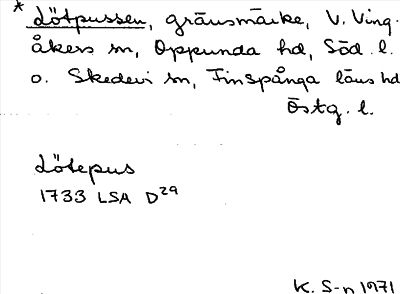 * Lötpussen, gränsmärke, V. Ving-
åkers sn, Oppunda hd, Söd. l.
o. Skedevi sn, Finspånga läns hd
Östg. l.
Lötepus
1733 LSA D29
K. S-n 1971